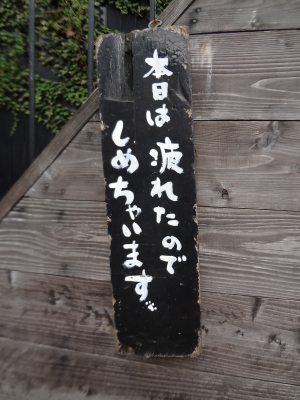 本日は疲れたので
しめちゃいます